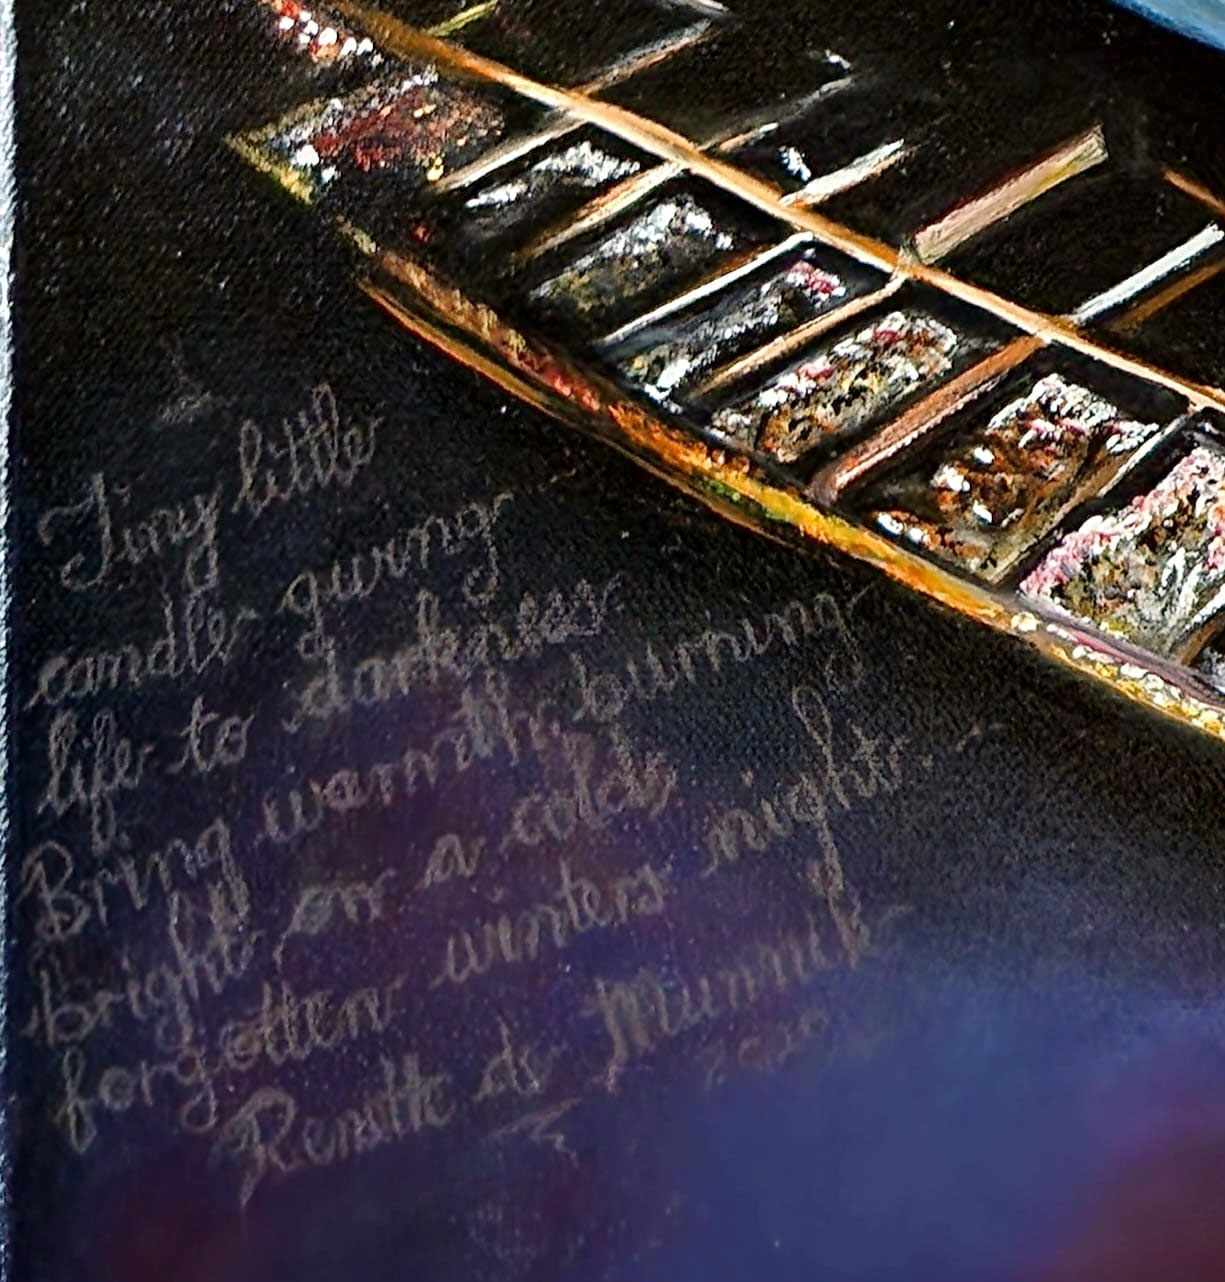 Tiny little
candle giving
life to darkness
Bring warmth, burning
bright on a cold
forgotten winters night.